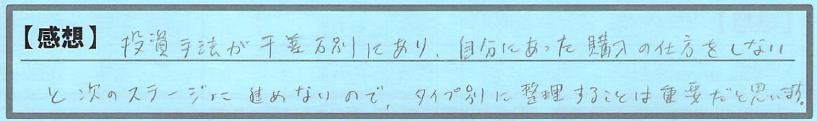 【感想】 投資手法が千差万別にあり、自分にあった購入の仕方をしない
と次のステージに進めないので、タイプ別に整理することは重要だと思います。